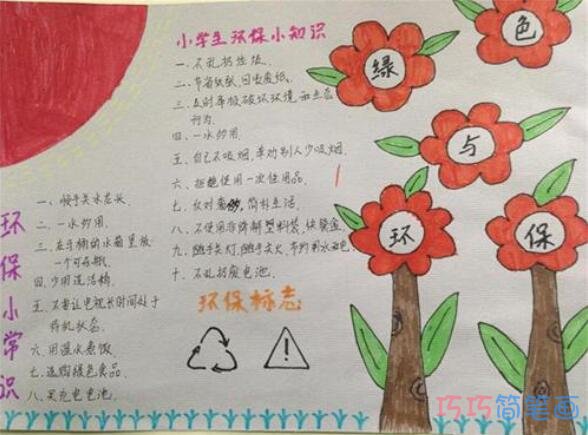 小学生环保小知识
一、不乱扔垃圾.
二、节省纸张,回收废纸.
三、及时举报破坏环境和生态
行为.
四、一水多用.
五、自己不吸烟,奉劝别人少吸烟.
六、拒绝使用一次性用品.
七、反对奢侈,简朴生活.
八、不使用非降解塑料袋、快餐盒.
九、随手关灯,随手关火,节约用水用电.
十、不乱扔废电池.
环保小常识
一、顺手关水龙头.
二、一水多用.
三、在马桶的水箱里放
一个可乐瓶.
四、少用洗洁精.
五、不要让电视长时间处于
待机状态.
六、用温水煮饭.
七、选购绿色食品.
八、买充电电池.
环保标志
绿
色
与
环
保
巧巧简笔画